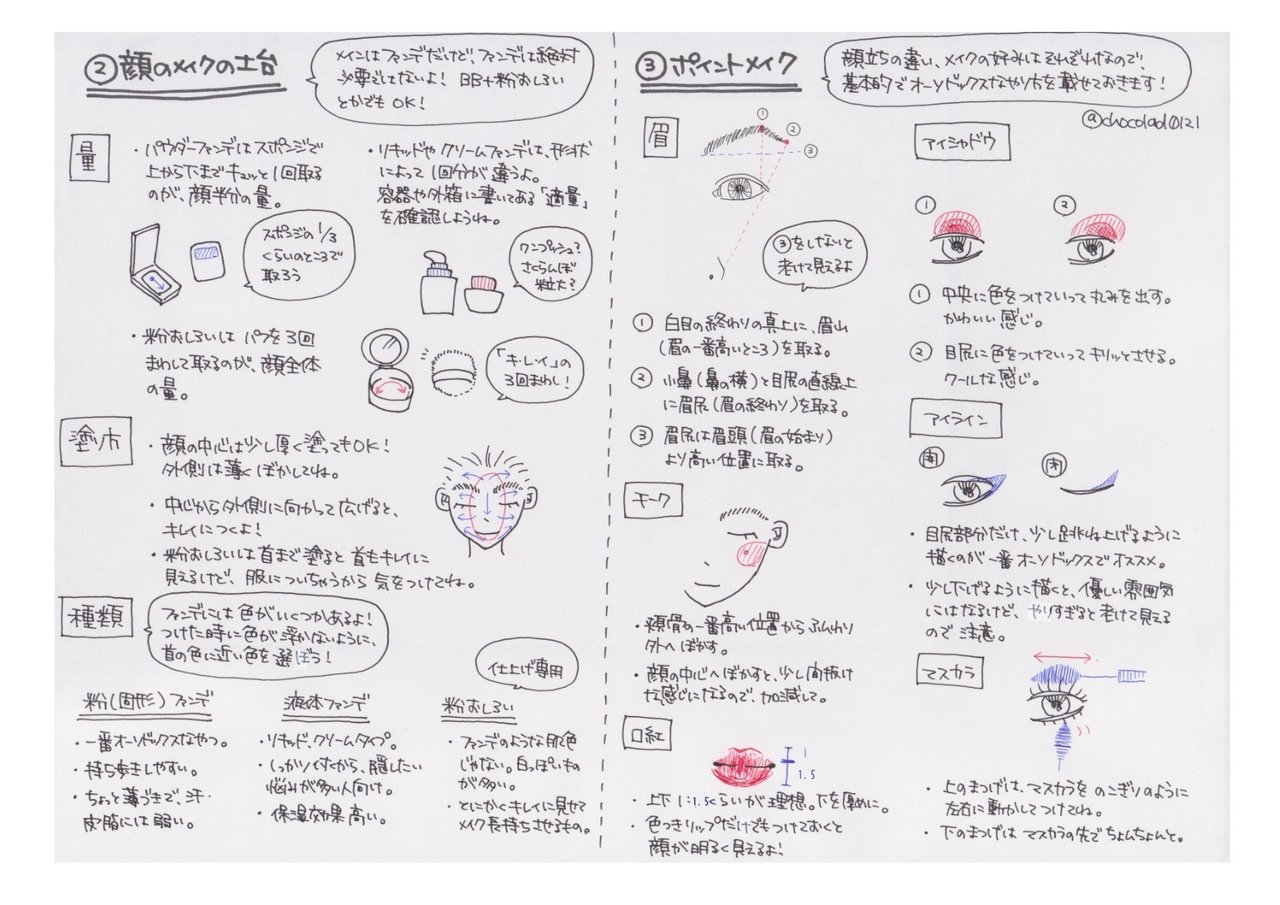 ②顔のメイクの土台
メインはファンデだけど、ファンデは絶対
必要ではないよ！ BB+粉おしろい
とかでも OK！
量
・パウダーファンデはスポンジで
上から下までキュッと1回取る
のが、顔半分の量。
・リキッドや クリームファンデは、形状
によって 1回分が違うよ。
容器や外箱に書いてある「適量」
を確認しようね。
スポンジの 1/3
くらいのところで
取ろう
ワンプッシュ?
さくらんぼ
粒大?
・粉おしろいは パフを3回
まわして取るのが、顔全体
の量。
「キ・レ・イ」の
3回まわし!
塗り方
・顔の中心は少し厚く塗ってもOK!
外側は薄く ぼかしてね。
・中心から外側に向かって広げると、
キレイにつくよ!
・粉おしろいは首まで塗ると 首もキレイに
見えるけど、服についちゃうから 気をつけてね。
種類
ファンデには 色がいくつかあるよ!
つけた時に色が浮かないように、
首の色に近い色を選ぼう!
粉(固形)ファンデ
・一番オーソドックスなやつ。
・持ち歩きしやすい。
・ちょっと薄づきで、汗・
皮脂には弱い。
液体ファンデ
・リキッド、クリームタイプ。
・しっかりつくから、隠したい
悩みが多い人向け。
・保湿効果高い。
仕上げ専用
粉おしろい
・ファンデのような肌色
じゃない。白っぽいもの
が多い。
・とにかくキレイに見せて
メイク長持ちさせるもの。
③ポイントメイク
顔立ちの違い、メイクの好みはそれぞれなので、
基本的でオーソドックスなやり方を載せておきます!
@chocolad0121
眉
①
②
③
③をしないと
老けて見えるよ
① 白目の終わりの真上に、眉山
(眉の一番高いところ)を取る。
② 小鼻(鼻の横)と目尻の直線上
に眉尻(眉の終わり)を取る。
③ 眉尻は眉頭(眉の始まり)
より高い位置に取る。
チーク
・頬骨の一番高い位置から ふんわり
外へぼかす。
・顔の中心へぼかすと、少し間抜け
な感じになるので、加減して。
口紅
1
1.5
・上下 1:1.5くらいが理想。下を厚めに。
・色つきリップだけでもつけておくと
顔が明るく見えるよ!
アイシャドウ
①
②
① 中央に色をつけていって丸みを出す。
かわいい感じ。
② 目尻に色をつけていってキリッとさせる。
クールな感じ。
アイライン
開
閉
・目尻部分だけ、少し跳ね上げるように
描くのが一番オーソドックスでオススメ。
・少し下げるように描くと、優しい雰囲気
にはなるけど、やりすぎると老けて見える
ので 注意。
マスカラ
・上のまつげは、マスカラを のこぎりのように
左右に動かしてつけてね。
・下のまつげは マスカラの先でちょんちょんと。